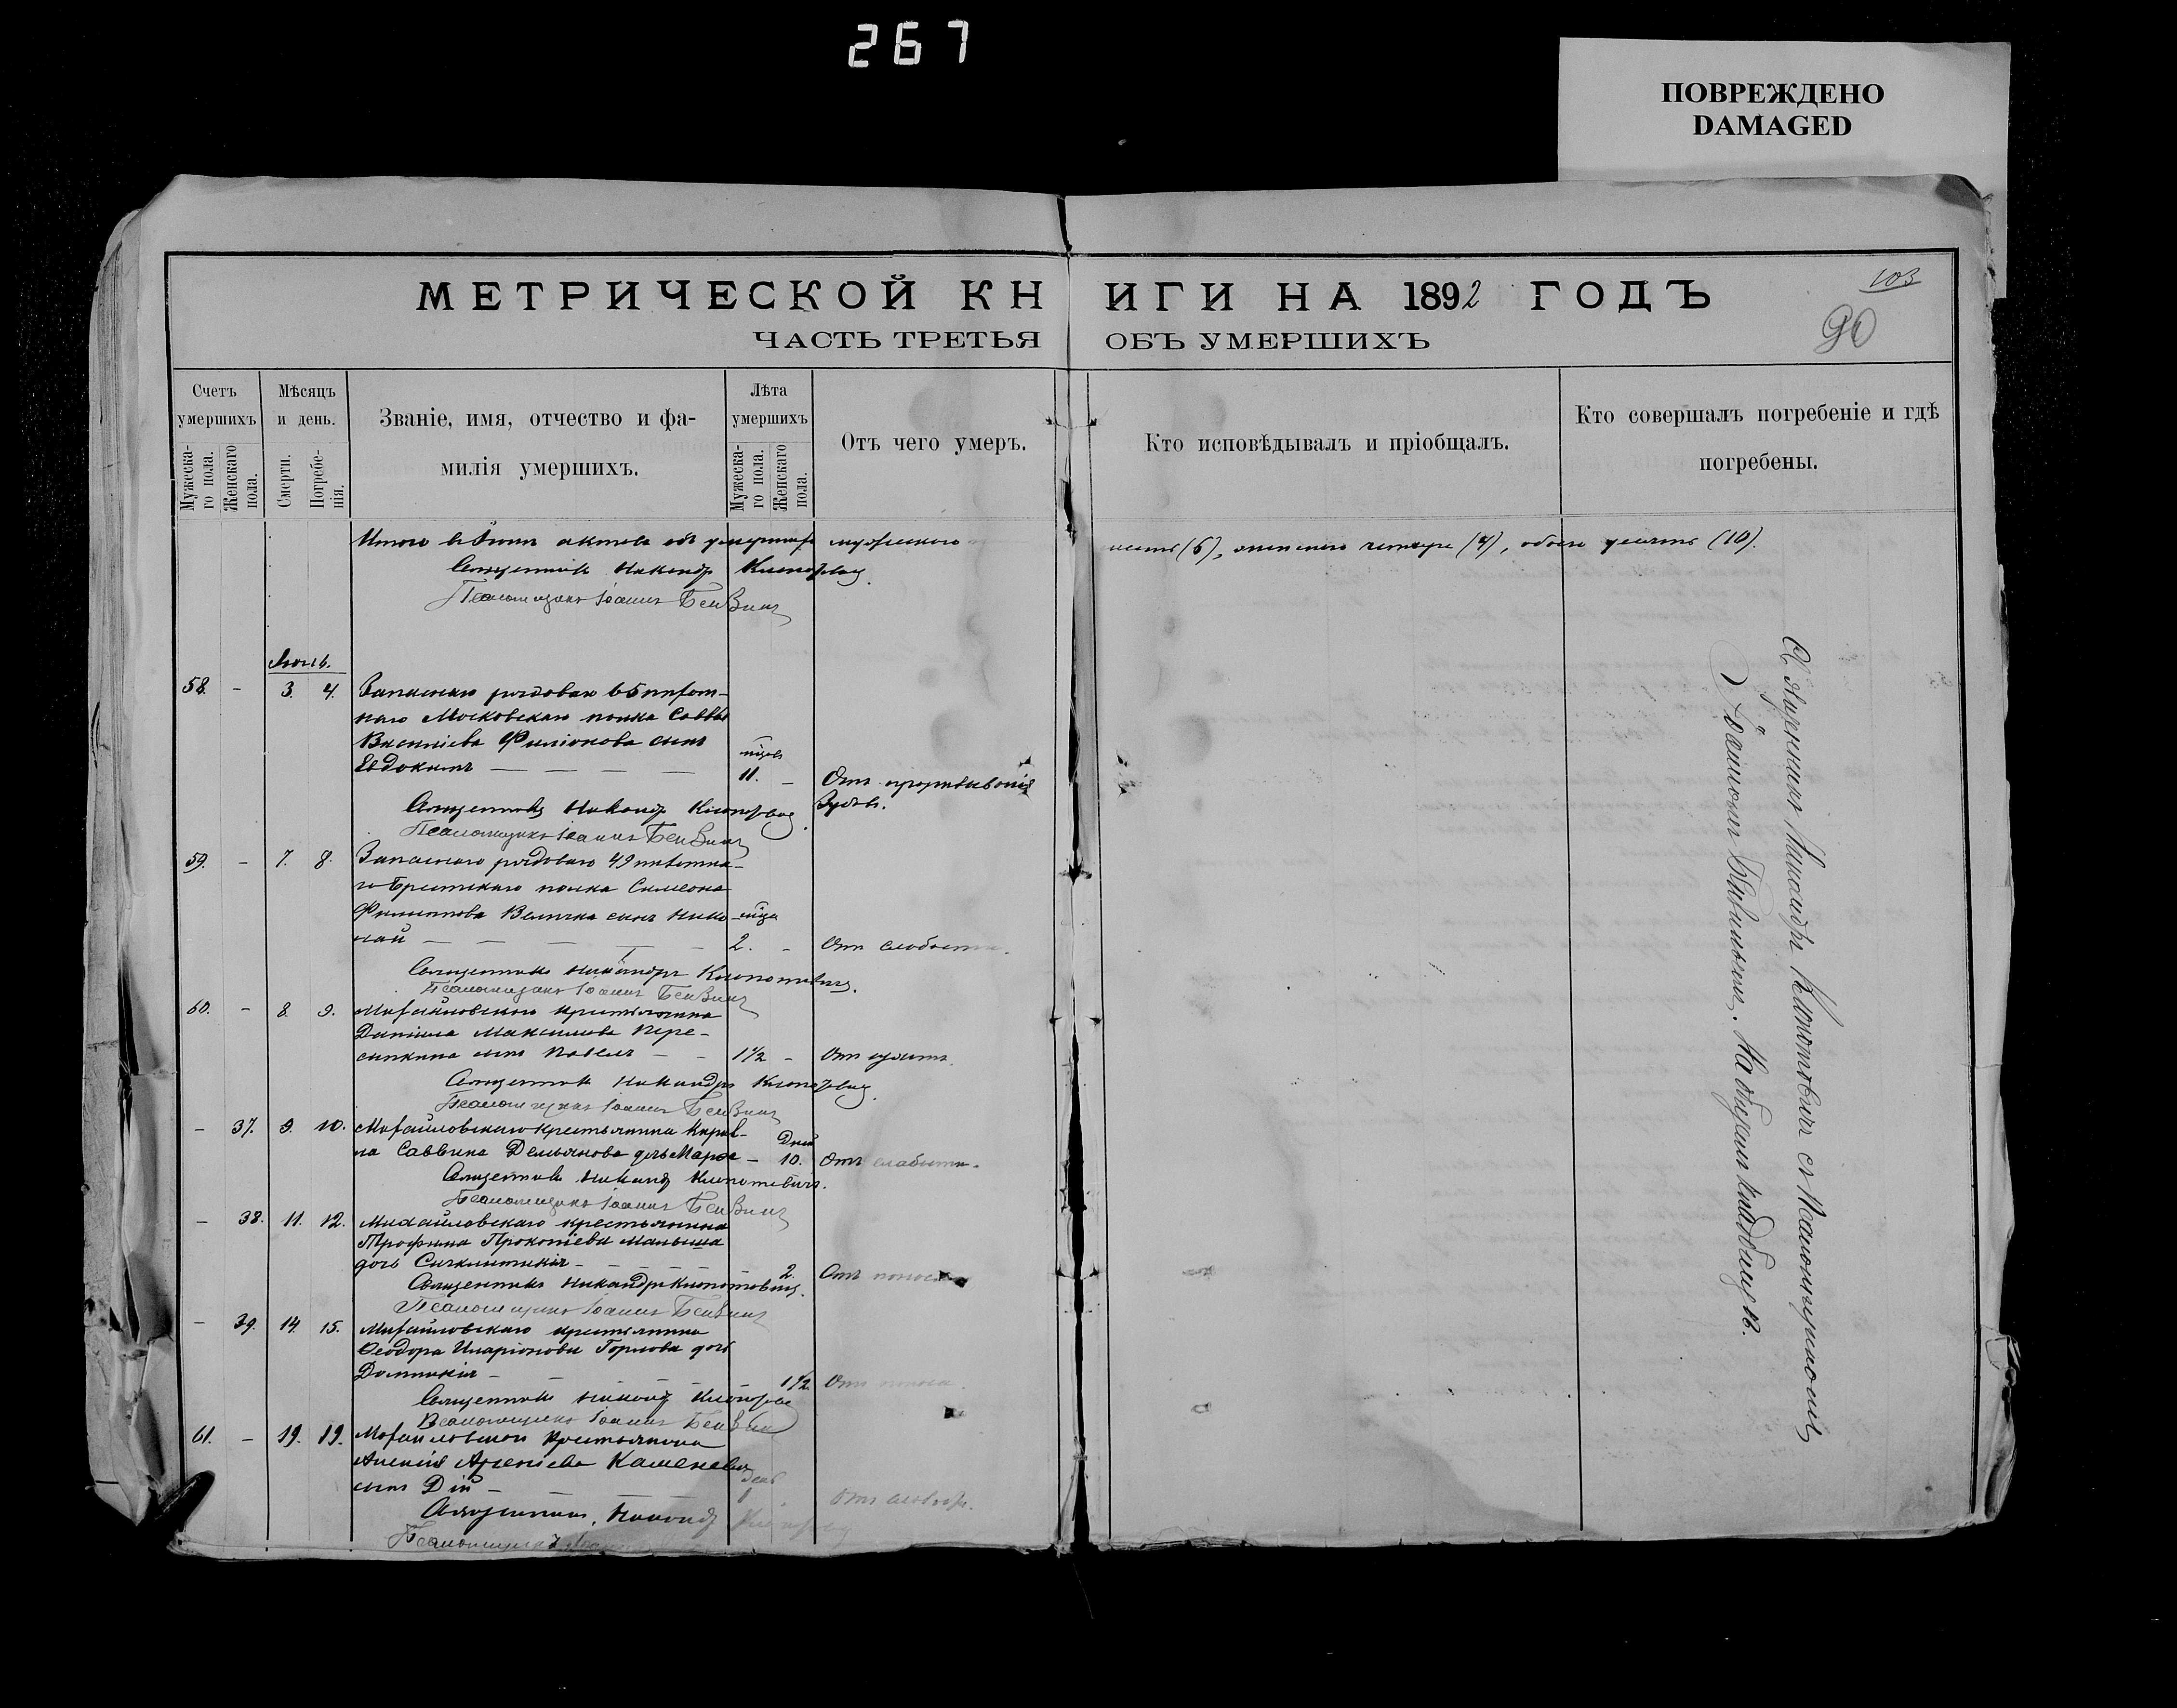 267
ПОВРЕЖДЕНО
DAMAGED
МЕТРИЧЕСКОЙ КНИГИ НА 1892 ГОДЪ
103
90
ЧАСТЬ ТРЕТЬЯ ОБЪ УМЕРШИХЪ
Счетъ умершихъ
Мужеска-го пола.
Женскаго пола.
Мѣсяцъ и день.
Смерти.
Погребе-нія.
Званіе, имя, отчество и фа-
милія умершихъ.
Лѣта умершихъ
Мужеска-го пола.
Женскаго пола.
Отъ чего умеръ.
Кто исповѣдывалъ и пріобщалъ.
Кто совершалъ погребеніе и гдѣ
погребены.
Итого въ Іюнѣ актовъ объ умершихъ мужескаго шесть (6), женскаго четыре (4), обоего десять (10).
Священникъ Никандръ Клопотовичъ
Псаломщикъ Іоаннъ
Іюль.
58. - 3. 4. Запаснаго рядоваго 65 пѣхот-
наго Московскаго полка Саввы
Василіева Филіонова сынъ
Евдокимъ 11. - Отъ прорѣзыванія
зубовъ.
Священникъ Никандръ Клопотовичъ
Псаломщикъ Іоаннъ
59. - 7. 8. Запаснаго рядоваго 49 пѣхотна-
го Брестскаго полка Симеона
Филиппова Величка сынъ Нико-
лай 2. - Отъ слабости.
Священникъ Никандръ Клопотовичъ.
Псаломщикъ Іоаннъ
60. - 8. 9. Михайловскаго крестьянина
Даніила Максимова Пере-
сыпкина сынъ Павелъ 1 1/2 - Отъ
Священникъ Никандръ Клопотовичъ.
Псаломщикъ Іоаннъ
- 37. 9. 10. Михайловскаго крестьянина Кирил-
ла Саввина Демьянова дочь Марѳа - Дней 10. Отъ слабости.
Священникъ Никандръ Клопотовичъ.
Псаломщикъ Іоаннъ
- 38. 11. 12. Михайловскаго крестьянина
Трофима Прокопіева Малыша
дочь Синклитикія 2. Отъ поноса
Священникъ Никандръ Клопотовичъ.
Псаломщикъ Іоаннъ
- 39. 14. 15. Михайловскаго крестьянина
Ѳеодора Иларіонова Горлова дочь
Домникія 1 1/2. Отъ поноса.
Священникъ Никандръ Клопотовичъ
Псаломщикъ Іоаннъ
61. - 19. 19. Михайловскаго крестьянина
Алексія Арсеніева Каменева
сынъ Дій 1 Отъ
Священникъ Никандръ
Псаломщикъ
Священникъ Никандръ Клопотовичъ съ Псаломщикомъ
Іоанномъ На общемъ кладбищѣ.